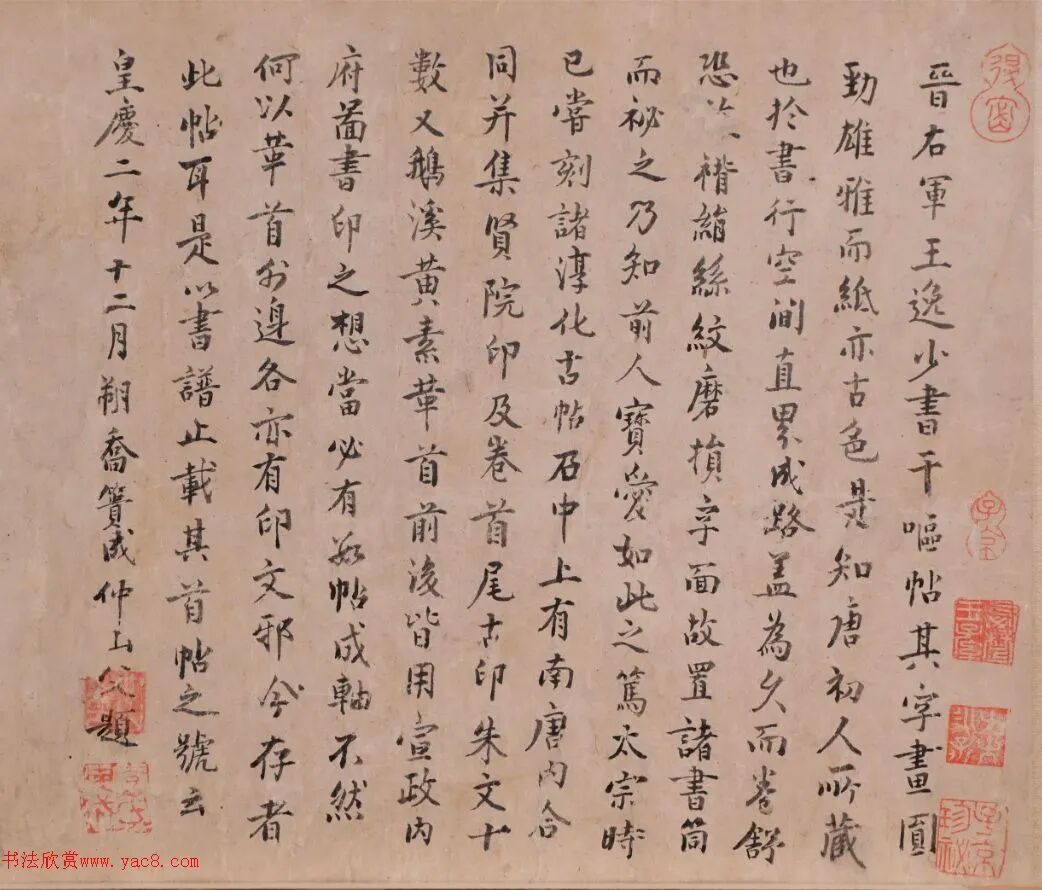 晉右軍王逸少書干嘔帖其字畫圓
勁雄雅而紙亦古色是知唐初人所藏
也於書行空間直累成路盖為久而卷舒
恐 褙絹絲紋磨損字面故置諸書筒
而祕之乃知前人寶愛如此之篤太宗時
已嘗刻諸淳化古帖石中上有南唐內合
同并集賢院印及卷首尾古印朱文十
數又鵝溪黃素華首前後皆用宣政內
府圖書印之想當必有數帖成軸不然
何以華首外邊各亦有印文邪今存者
此帖耳是以書譜止載其首帖之號云
皇慶二年十二月朔喬簣成仲山父題
子京
珍祕
书法欣赏www.yac8.com